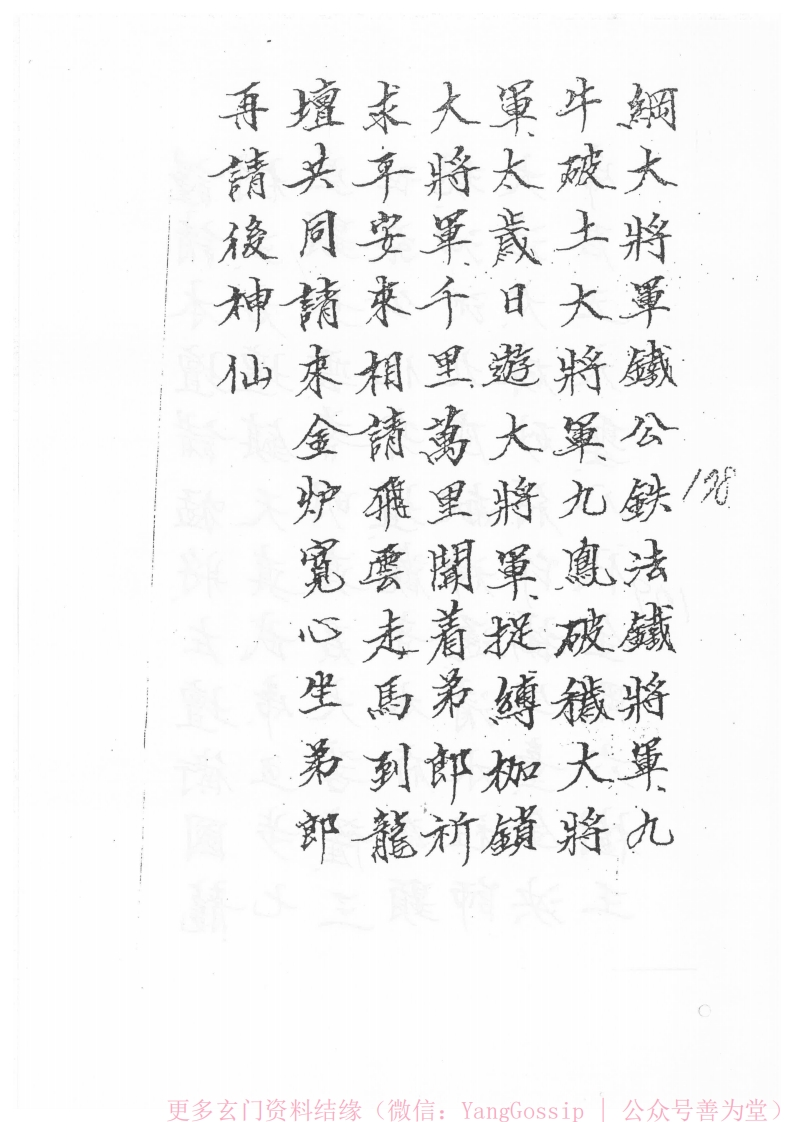 綱大將軍鐵公鉄法鐵將軍九
牛破土大將軍九鳳破穢大將
軍太歲日遊大將軍捉縛枷鎖
大將軍千里萬里聞着弟郎祈
求平安來相請飛雲走馬到龍
壇共同請來金炉寬心坐弟郎
再請後神仙
198
更多玄门资料结缘（微信：YangGossip | 公众号善为堂）